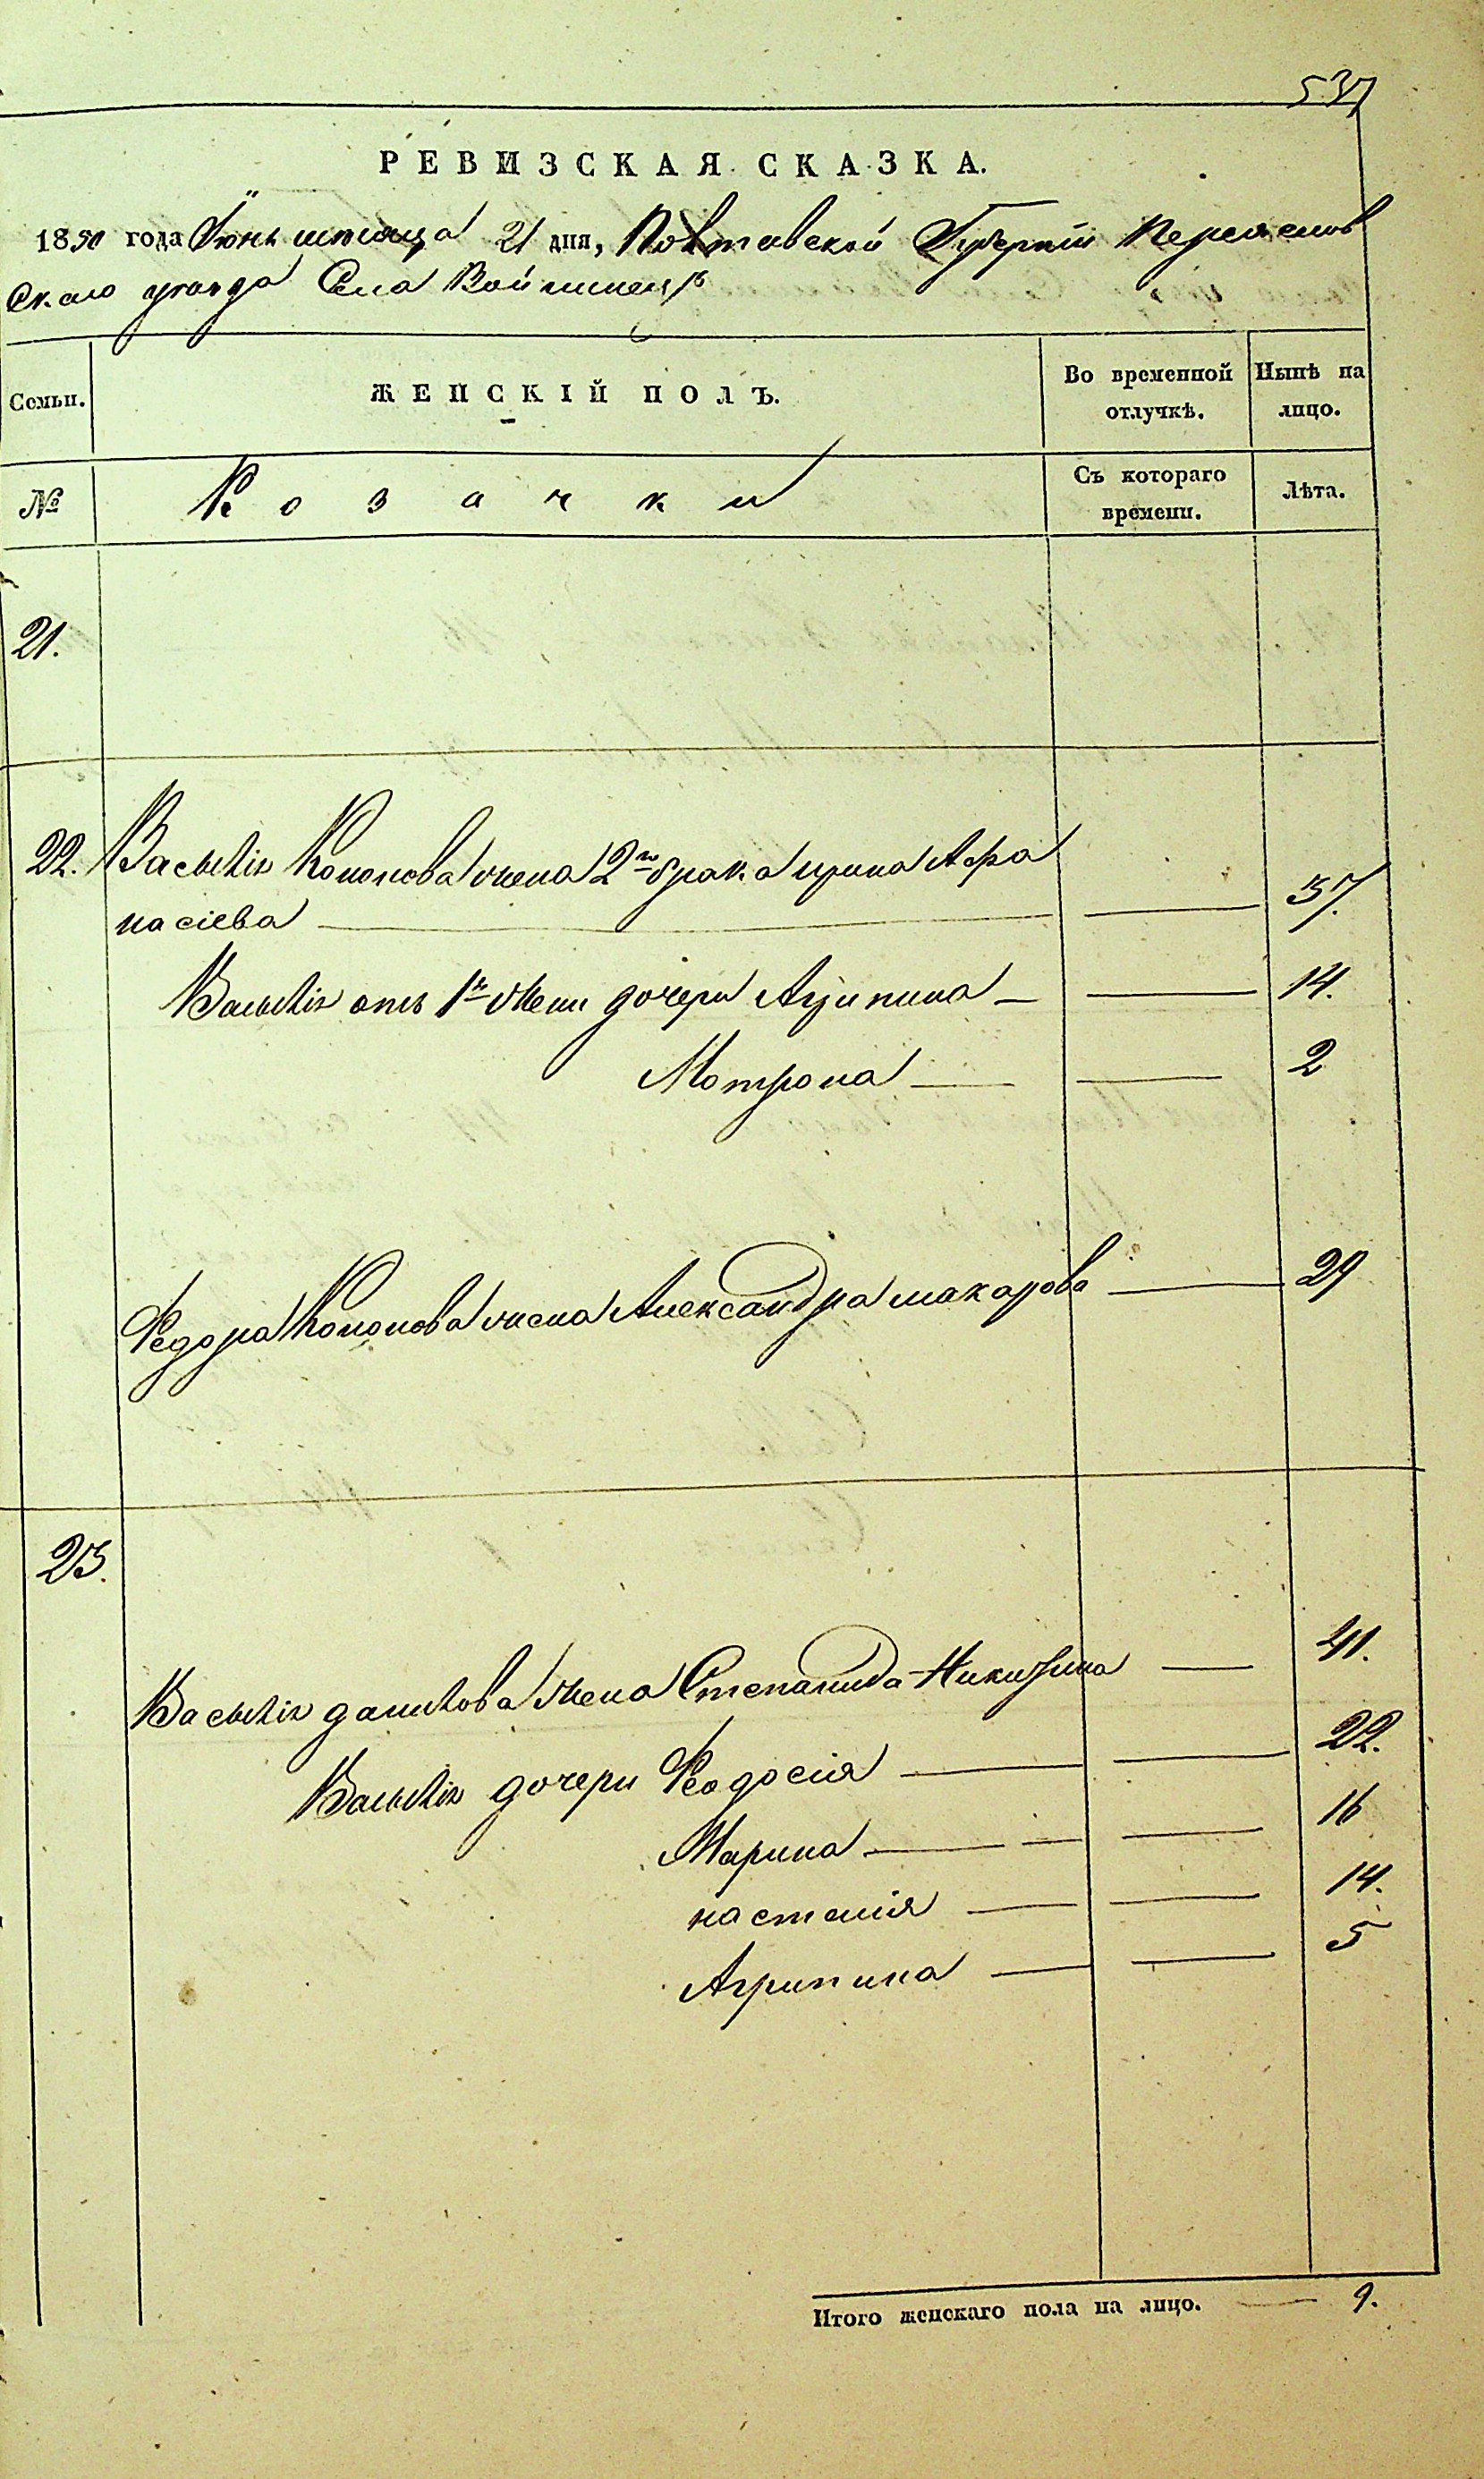 537
РЕВИЗСКАЯ СКАЗКА.
1850 года Іюнь месяца 21 дня, Полтавской Губерніи Переяслов
скаго уезда Села Войтинецъ
Семьи. ЖЕНСКІЙ ПОЛЪ. Во временной отлучкѣ. Нынѣ на лицо.
№ Козачки Съ котораго времени. Лѣта.
21.
22. Василія Кононова жена 2го брака Ирина Афа
насіева 37.
Василія отъ 1й жены дочери Агрипина 14.
Мотрона 2
Федора Кононова жена Александра Макарова 29
23.
Василія Данилова жена Степанида Никитина 41.
Василія дочери Феодосія 22.
Марина 16
Настасія 14.
Агрипина 5
Итого женскаго пола на лицо. 9.